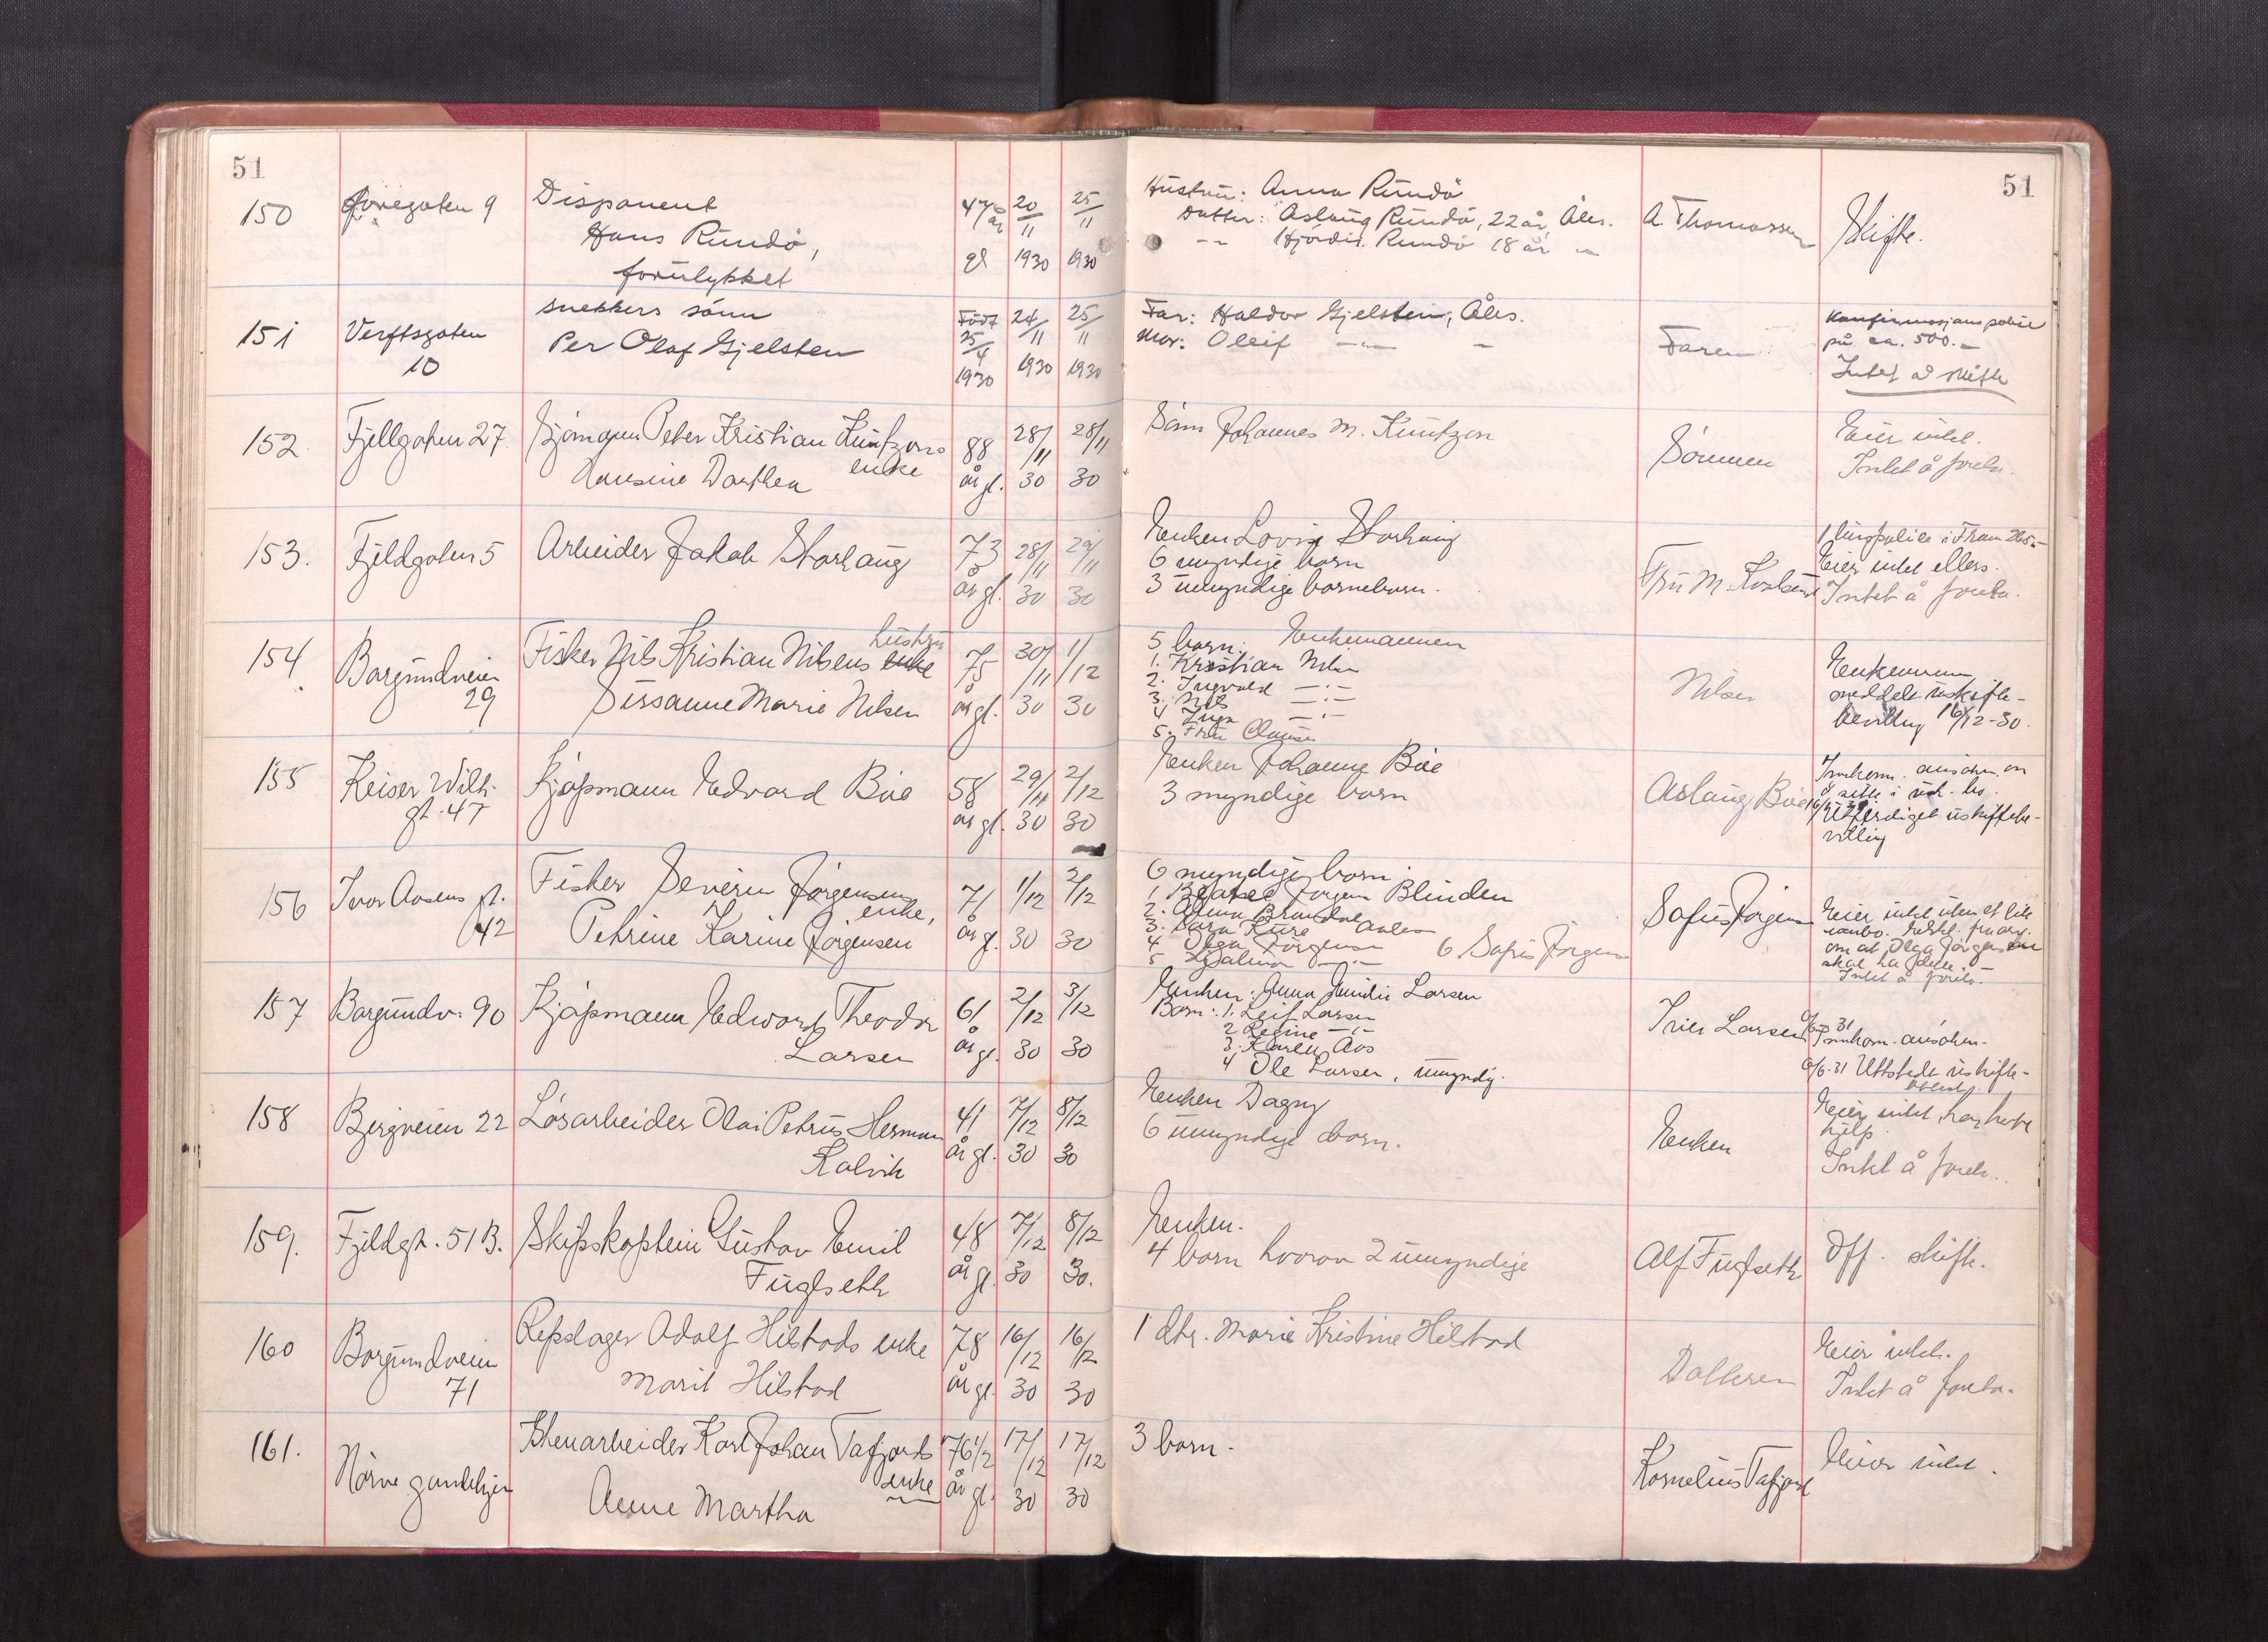 51
51
150
9
Disponent
Hans Rundö,
forulykket
47 år
gl
20/11 1930
25/11 1930
Hustru: Anna Rundö
Datter: Aslaug Rundö, 22 år, Åles.
-"- Hjördis Rundö 18 år -"-
A. Thomassen
Skifte.
151
Verftsgaten
10
snekkers sönn
Per Olaf Gjelsten
Födt
25/4
1930
24/11 1930
25/11 1930
Far: Haldor Gjelsten, Åles.
Mor: Oleif -"- -
Faren
Konfirmasjonspolise
på ca. 500.-
Intet å skifte
152.
Fjellgaten 27.
Peter Kristian Kuntzons
enke
Hansine Dorthea
88
år gl.
28/11 30
28/11 30
Sönn Johannes M. Kuntzon
Sönnen
Eier intet.
Intet å foreta.
153.
Fjeldgaten 5
Arbeider Jakob Storhaug
73
år gl.
28/11 30
29/11 30
Enken Lovise Storhaug
6 myndige barn
3 umyndige barnebarn.
Fru M.
1 livspolise i Fram 265.-
Eier intet ellers.
Intet å foreta.
154
Borgundveien
29
hustru
Fisker Nils Kristian Nilsens enke
Sussanne Marie Nilsen
75
år gl.
30/11 30
1/12 30
5 barn: Enkemannen
1. Kristian Nilsen
2. Ingvald -"-
3. Nils -"-
4 Inga -"-
5. Fru Clausen
Nilsen
Enkemann
meddelt uskifte-
bevilling 16/12-30.
155
Keiser Wilh.
gt. 47
Kjöpmann Edvard Böe
58
år gl.
29/11 30
2/12 30
Enken Johanne Böe
3 myndige barn
Aslaug Böe
Innkom. ansökn. om
å sitte i usk. bo.
Utferdiget uskiftebe-
villing
156
Ivar Aasens gt.
42
Fisker Severin Jörgensens
enke,
Petrine Karine Jörgensen
71
år gl.
1/12 30
2/12 30
6 myndige barn.
1. Jörgen Blinden
2. Anna Brandal
3. Sara Kure
4 Olga Jörgensen
5 Hjalmar -"-
6. Sofus Jörgensen
Sofus Jörgensen
Eier intet uten et lite
om at Olga Jörgensen
skal ha dette.-
Intet å foreta.
157
Borgundv. 90
Kjöpmann Edward Theodor
Larsen
61
år gl.
2/12 30
3/12 30
Enken: Anna Emilie Larsen
Barn: 1. Leif Larsen
2 Regine -"-
3. Karen Aas
4 Ole Larsen, umyndig.
Larsen
Innkom. ansökn.
6/6-31 Utstedt uskifte-
158
Bergveien 22
Lösarbeider Olai Petrus Herman
Kalvik
41
år gl.
7/12 30
8/12 30
Enken Dagny
6 umyndige barn.
Enken
Eier intet, har hatt
hjelp
Intet å foreta.
159.
Fjeldgt. 51 B.
Skipskaptein Gustav Emil
Fuglseth
48
år gl.
7/12 30
8/12 30.
Enken.
4 barn hvorav 2 umyndige
Alf Fuglseth
Off. skifte.
160
Borgundveien
71
Repslager Adolf Hilstads enke
Marit Hilstad
78
år gl.
16/12 30
16/12 30
1 dtr. Marie Kristine Hilstad
Datteren
Eier intet.
Intet å foreta.
161.
Nörve gamlehjem
Karl Johan Tafjords
enke
Anne Martha
76 1/2
år gl.
17/12 30
17/12 30
3 barn.
Kornelius Tafjord
Eier intet.